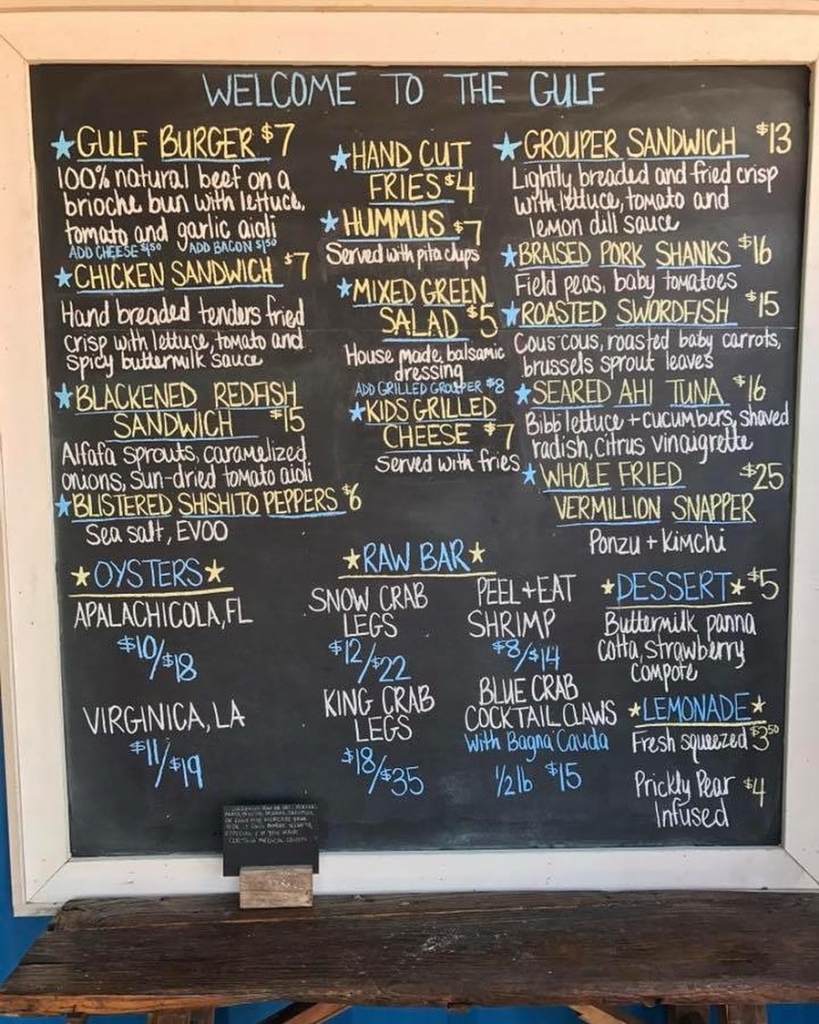 WELCOME TO THE GULF
★ GULF BURGER $7
100% natural beef on a
brioche bun with lettuce,
tomato and garlic aioli
ADD CHEESE $1.50 ADD BACON $1.50
★ CHICKEN SANDWICH $7
Hand breaded tenders fried
crisp with lettuce, tomato and
spicy buttermilk sauce
★ BLACKENED REDFISH
SANDWICH $15
Alfafa sprouts, caramelized
onions, sun-dried tomato aioli
★ BLISTERED SHISHITO PEPPERS $6
Sea salt, EVOO
★ HAND CUT
FRIES $4
★ HUMMUS $7
Served with pita chips
★ MIXED GREEN
SALAD $5
House made balsamic
dressing
ADD GRILLED GROUPER $8
★ KIDS GRILLED
CHEESE $7
Served with fries
★ GROUPER SANDWICH $13
Lightly breaded and fried crisp
with lettuce, tomato and
lemon dill sauce
★ BRAISED PORK SHANKS $16
Field peas, baby tomatoes
★ ROASTED SWORDFISH $15
Cous cous, roasted baby carrots,
brussels sprout leaves
★ SEARED AHI TUNA $16
Bibb lettuce + cucumbers, shaved
radish, citrus vinaigrette
★ WHOLE FRIED $25
VERMILLION SNAPPER
Ponzu + Kimchi
★ OYSTERS ★
APALACHICOLA, FL
$10/$18
VIRGINICA, LA
$11/$19
★ RAW BAR ★
SNOW CRAB
LEGS
$12/$22
KING CRAB
LEGS
$18/$35
PEEL + EAT
SHRIMP
$8/$14
BLUE CRAB
COCKTAIL CLAWS
With Bagna Cauda
1/2 lb $15
★ DESSERT ★ $5
Buttermilk panna
cotta, strawberry
compote
★ LEMONADE ★
Fresh squeezed $3.50
Prickly Pear $4
Infused